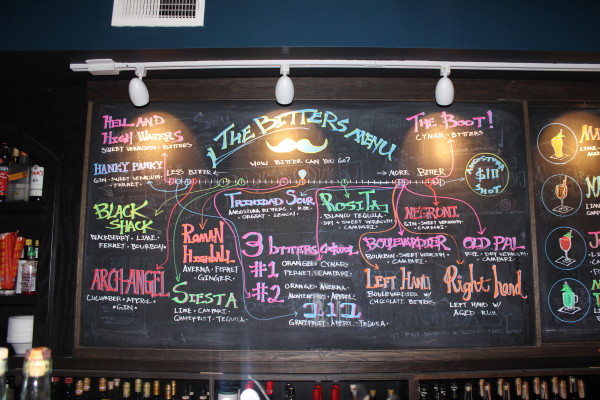 HELL AND
HIGH WATERS
SWEET VERMOUTH · BITTERS
THE BITTERS MENU
HOW BITTER CAN YOU GO?
THE BOOT!
CYNAR · BITTERS
HANKY PANKY
GIN · SWEET VERMOUTH ·
FERNET ·
LESS BITTER
MORE BITTER
ANGOSTURA
SHOT
BLACK
SHACK
BLACKBERRY · LIME ·
FERNET · BOURBON
TRINIDAD SOUR
ANGOSTURA BITTERS · RYE ·
ORGEAT · LEMON ·
ROSITA
BLANCO TEQUILA ·
DRY + SWEET VERMOUTH ·
CAMPARI
NEGRONI
GIN · SWEET VERMOUTH ·
CAMPARI ·
ROMAN
HIGHBALL
AVERNA · FERNET
· GINGER ·
3 BITTERS
#1
ORANGE · CYNAR ·
FERNET · CAMPARI
#2
ORANGE · AVERNA ·
APEROL
BOULEVARDIER
BOURBON · SWEET VERMOUTH ·
CAMPARI
OLD PAL
RYE · DRY VERMOUTH ·
CAMPARI
ARCHANGEL
CUCUMBER · APEROL ·
· GIN ·
SIESTA
LIME · CAMPARI ·
GRAPEFRUIT · TEQUILA ·
LEFT HAND
BOULEVARDIER W/
CHOCOLATE BITTERS
RIGHT HAND
LEFT HAND W/
AGED RUM
1:1:1
GRAPEFRUIT · APEROL · TEQUILA ·